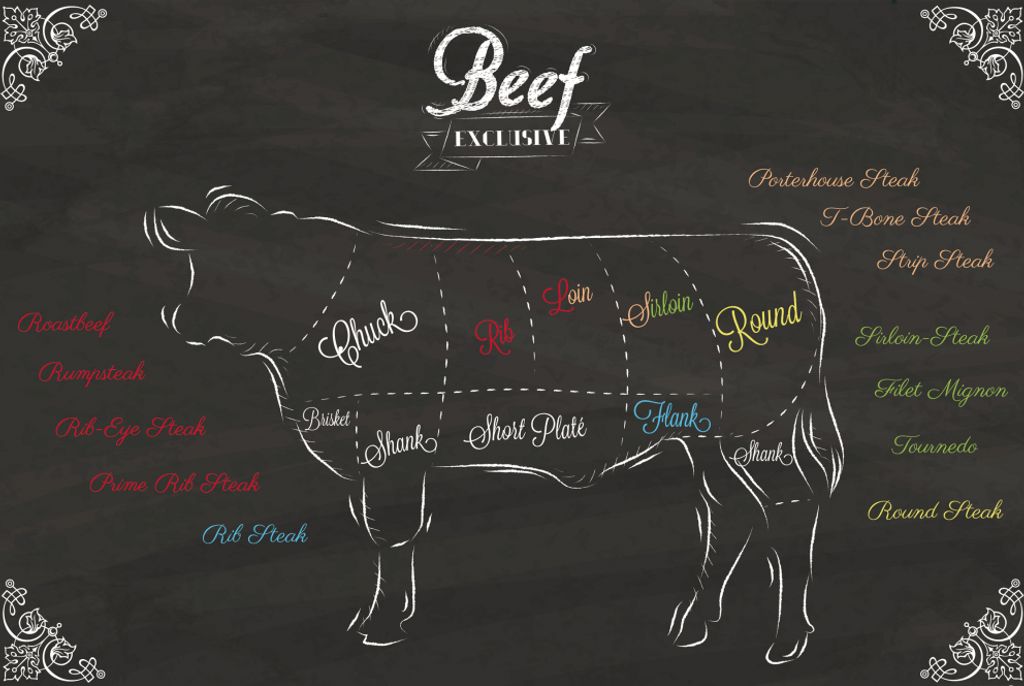 Beef
EXCLUSIVE
Porterhouse Steak
T-Bone Steak
Strip Steak
Chuck
Rib
Loin
Sirloin
Round
Roastbeef
Rumpsteak
Rib-Eye Steak
Prime Rib Steak
Rib Steak
Brisket
Shank
Short Platé
Flank
Shank
Sirloin-Steak
Filet Mignon
Tournedo
Round Steak